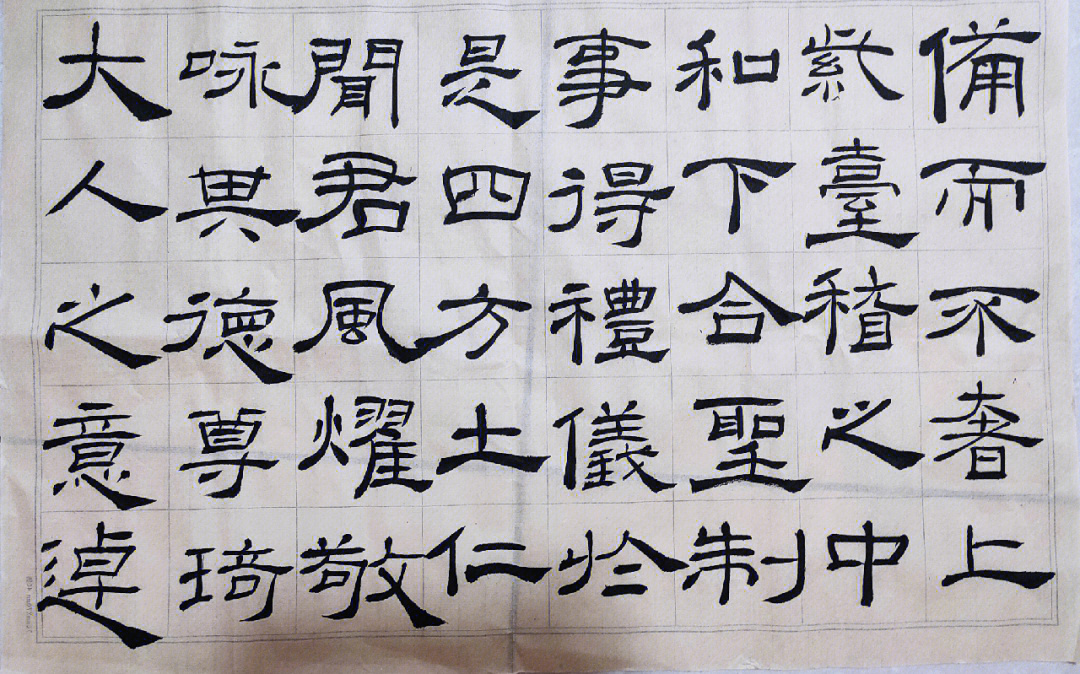 備而不奢上
紫臺稽之中
和下合聖制
事得禮儀於
是四方土仁
聞君風燿敬
咏其德尊琦
大人之意逴